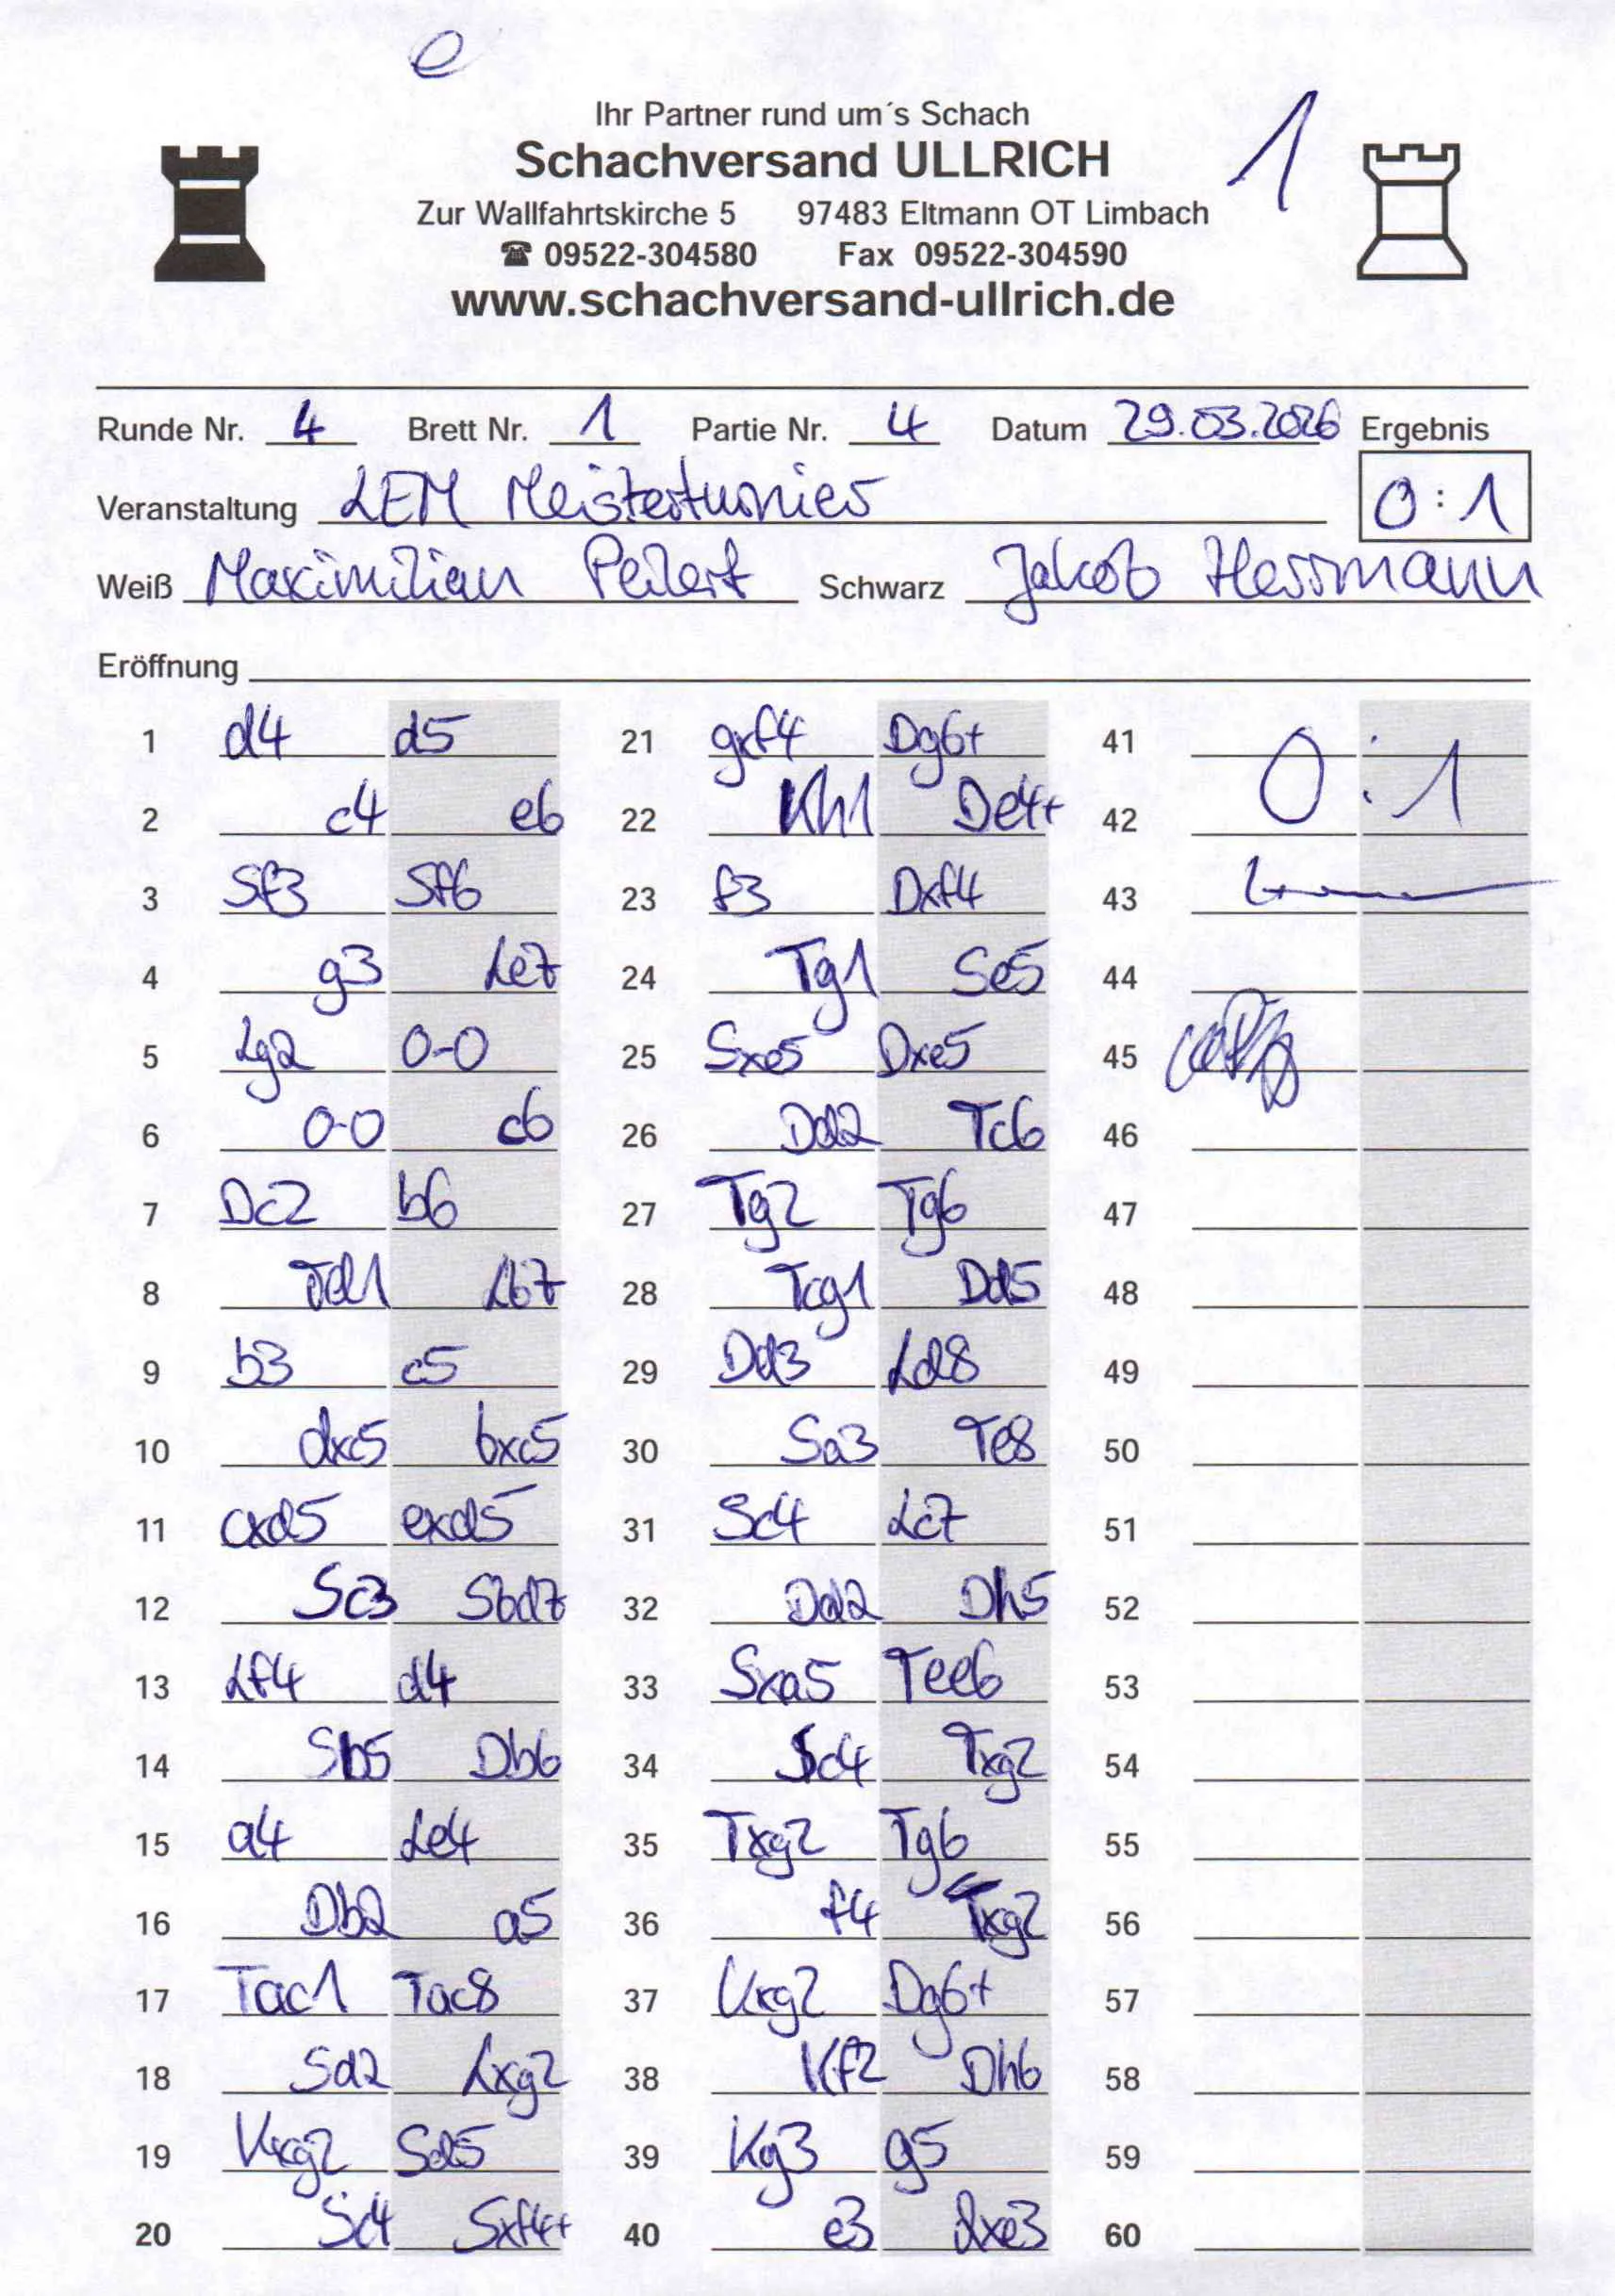 e
Ihr Partner rund um´s Schach
1
Schachversand ULLRICH
Zur Wallfahrtskirche 5 97483 Eltmann OT Limbach
☎ 09522-304580 Fax 09522-304590
www.schachversand-ullrich.de
Runde Nr. 4 Brett Nr. 1 Partie Nr. 4 Datum 29.03.2026 Ergebnis
Veranstaltung LEM Meisterturnier 0:1
Weiß Maximilian Peilert Schwarz Jakob Herrmann
Eröffnung
1 d4 d5 21 gxf4 Dg6+ 41 0:1
2 c4 e6 22 Kh1 De4+ 42
3 Sf3 Sf6 23 f3 Dxf4 43
4 g3 Le7 24 Tg1 Se5 44
5 Lg2 0-0 25 Sxe5 Dxe5 45
6 0-0 c6 26 Dd2 Tc6 46
7 Dc2 b6 27 Tg2 Tg6 47
8 Td1 Lb7 28 Tcg1 Dd5 48
9 b3 c5 29 Dd3 Ld8 49
10 dxc5 bxc5 30 Sa3 Te8 50
11 cxd5 exd5 31 Sc4 Lc7 51
12 Sc3 Sbd7 32 Dd2 Dh5 52
13 Lf4 d4 33 Sxa5 Tee6 53
14 Sb5 Db6 34 Sc4 Txg2 54
15 a4 Le4 35 Txg2 Tg6 55
16 Db2 a5 36 f4 Txg2 56
17 Tac1 Tac8 37 Kxg2 Dg6+ 57
18 Sd2 Lxg2 38 Kf2 Dh6 58
19 Kxg2 Sd5 39 Kg3 g5 59
20 Sc4 Sxf4+ 40 e3 dxe3 60